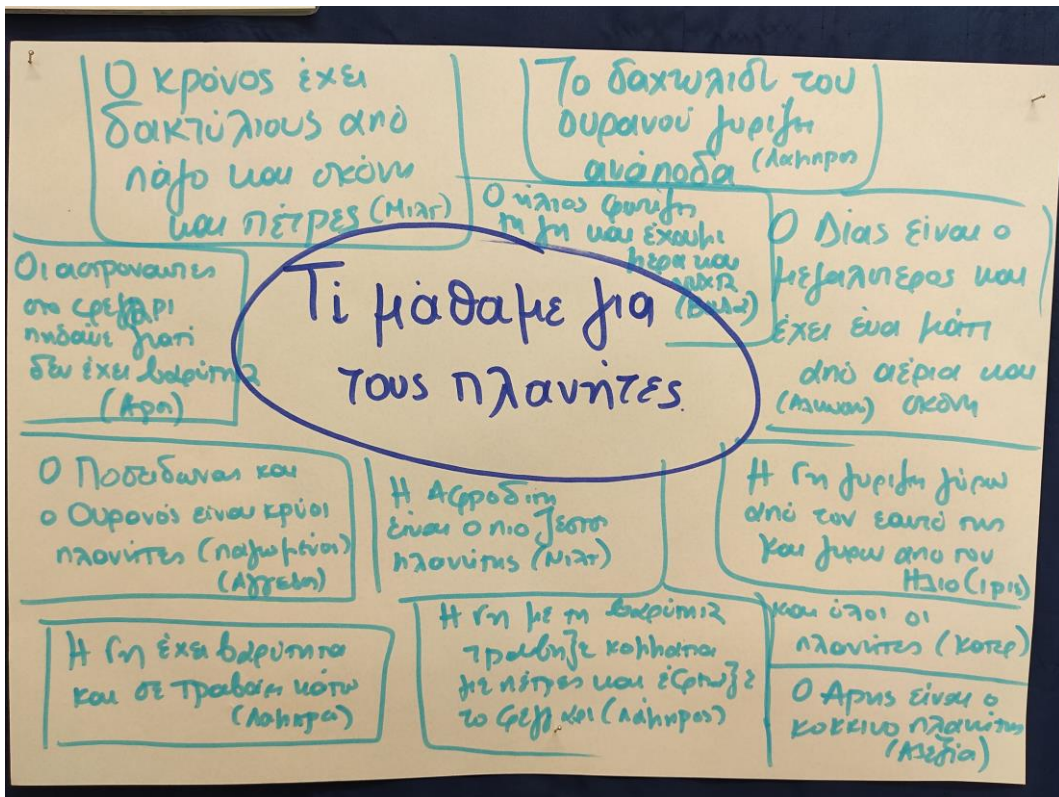 Ο κρόνος έχει
δακτύλιους από
πάγο και σκόνη
και πέτρες (Μιλτ)
Το δαχτυλιδι του
ουρανού γυριζη
ανάποδα (Λάμπρος
Ο ήλιος φωτίζη
τη γη και έχουμε
μερα και
νύχτα
Ο Δίας είναι ο
μεγαλύτερος και
έχει ένα μάτι
από αέρια και
σκόνη
Οι αστροναυτες
στο φεγγάρι
πηδάνε γιατί
δεν έχει βαρύτητα
(Αρη)
Τί μάθαμε για
τους πλανήτες.
Ο Ποσειδωνας και
ο Ουρανός είναι κρύοι
πλανήτες (παγωμένοι)
Η Αφροδίτη
είναι ο πιο ζεστο
πλανήτης (Μιλτ)
Η Γη γυριζη γύρω
από τον εαυτό της
και γυρω απο τον
Ηλιο (Ιρις)
και όλοι οι
πλανήτες (Κατερ)
Η Γη έχει βαρύτητα
και σε τραβάει κάτω
Η Γη με τη βαρύτητα
τραβηξε κομματια
με πέτρες και έφτιαξε
το φεγγάρι (Λάμπρος)
Ο Αρης είναι ο
κοκκινο πλανήτης
(Αλεξία)